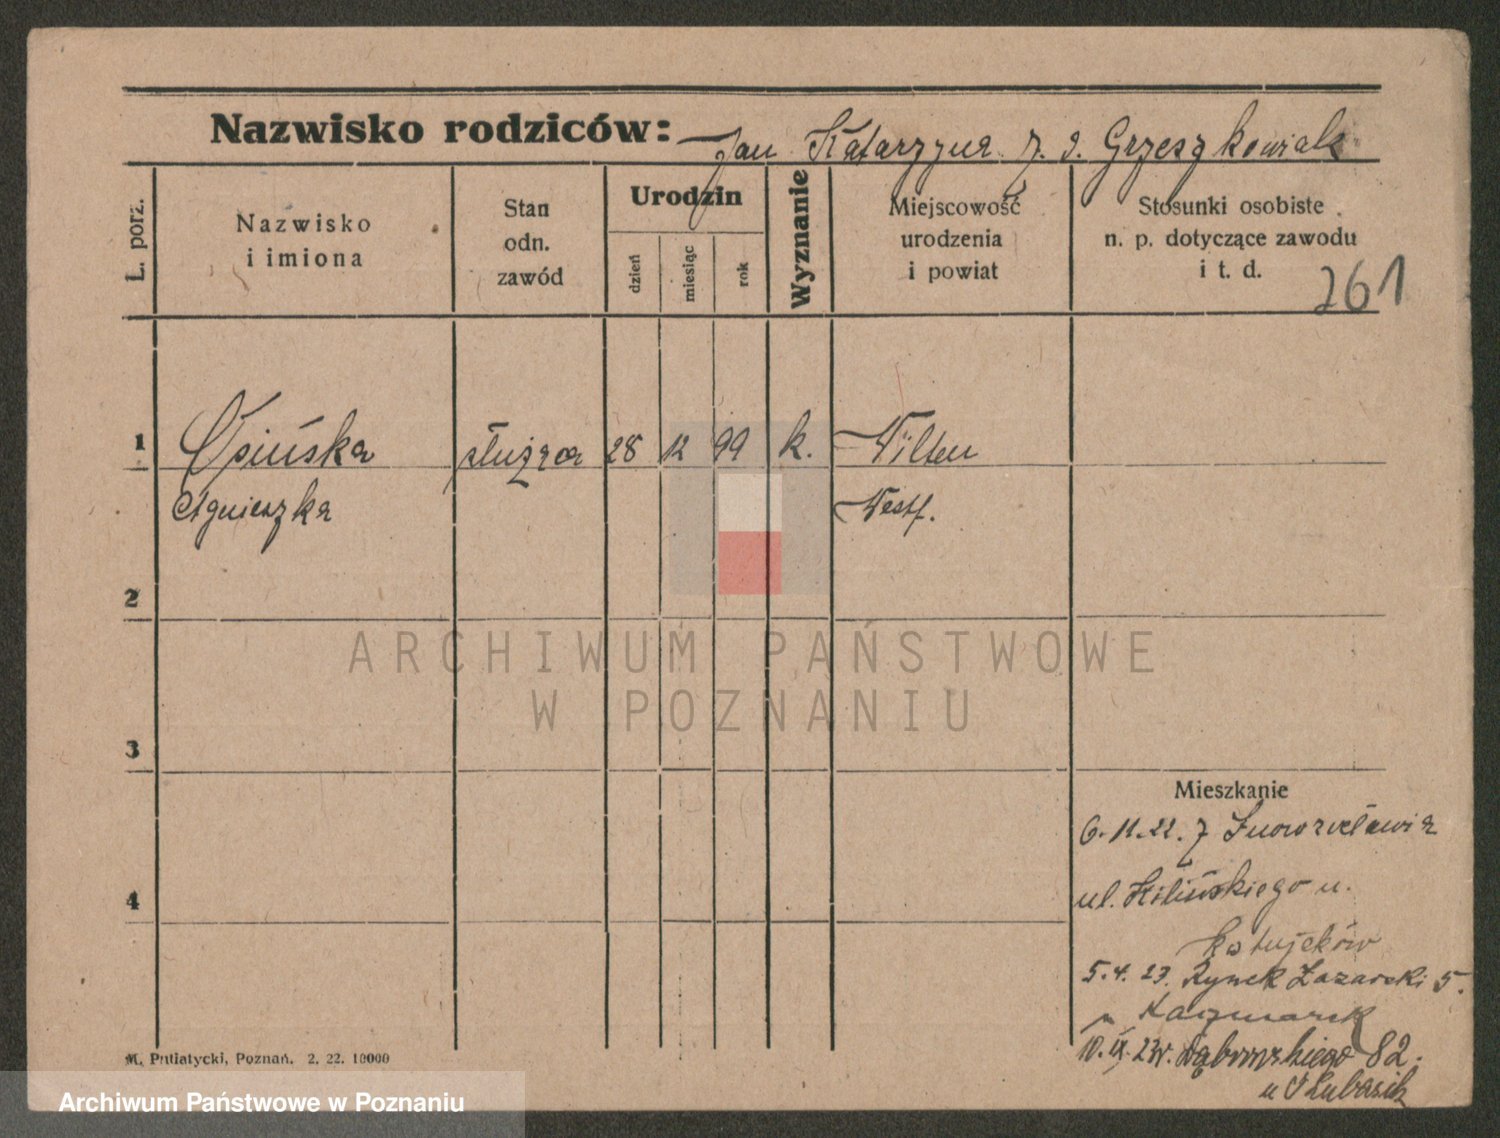 Nazwisko rodziców: Jan Katarzyna z d. Grzeszkowiak
L. porz.
Nazwisko
i imiona
Stan
odn.
zawód
Urodzin
dzień
miesiąc
rok
Wyznanie
Miejscowość
urodzenia
i powiat
Stosunki osobiste
n. p. dotyczące zawodu
i t. d.
261
1
Opińska
służąca
28
12
99
k.
Wilten
Agnieszka
Westf.
2
ARCHIWUM PAŃSTWOWE
W POZNANIU
3
Mieszkanie
6.11.22. z Inowrocławia
4
ul. Kilińskiego u.
5.4.23. Rynek Łazarski 5.
u Kaczmarek
10.IX.23r. Dąbrowskiego 82.
u Lubasik
M. Putiatycki, Poznań. 2. 22. 10000
Archiwum Państwowe w Poznaniu